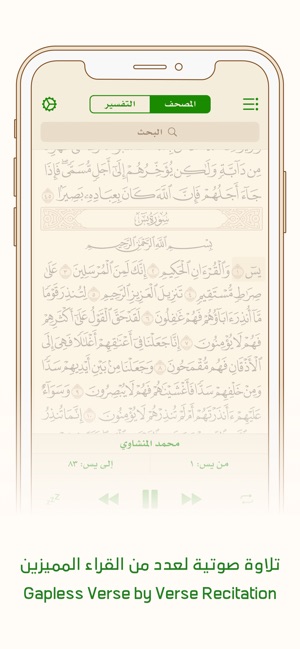 المصحف التفسير
البحث
مِن دَآبَّةٍ وَلَٰكِن يُؤَخِّرُهُمْ إِلَىٰٓ أَجَلٍ مُّسَمًّى ۖ فَإِذَا
جَآءَ أَجَلُهُمْ فَإِنَّ ٱللَّهَ كَانَ بِعِبَادِهِۦ بَصِيرًۢا ٤٥
سُورَةُ يسٓ
بِسْمِ ٱللَّهِ ٱلرَّحْمَٰنِ ٱلرَّحِيمِ
يسٓ ١ وَٱلْقُرْءَانِ ٱلْحَكِيمِ ٢ إِنَّكَ لَمِنَ ٱلْمُرْسَلِينَ ٣ عَلَىٰ
صِرَٰطٍ مُّسْتَقِيمٍ ٤ تَنزِيلَ ٱلْعَزِيزِ ٱلرَّحِيمِ ٥ لِتُنذِرَ قَوْمًا
مَّآ أُنذِرَ ءَابَآؤُهُمْ فَهُمْ غَٰفِلُونَ ٦ لَقَدْ حَقَّ ٱلْقَوْلُ عَلَىٰٓ أَكْثَرِهِمْ
فَهُمْ لَا يُؤْمِنُونَ ٧ إِنَّا جَعَلْنَا فِىٓ أَعْنَٰقِهِمْ أَغْلَٰلًا فَهِىَ إِلَى
ٱلْأَذْقَانِ فَهُم مُّقْمَحُونَ ٨ وَجَعَلْنَا مِنۢ بَيْنِ أَيْدِيهِمْ سَدًّا
وَمِنْ خَلْفِهِمْ سَدًّا فَأَغْشَيْنَٰهُمْ فَهُمْ لَا يُبْصِرُونَ ٩ وَسَوَآءٌ
عَلَيْهِمْ ءَأَنذَرْتَهُمْ أَمْ لَمْ تُنذِرْهُمْ لَا يُؤْمِنُونَ ١٠ إِنَّمَا تُنذِرُ
محمد المنشاوي
من يس: ١ إلى يس: ٨٣
تلاوة صوتية لعدد من القراء المميزين
Gapless Verse by Verse Recitation